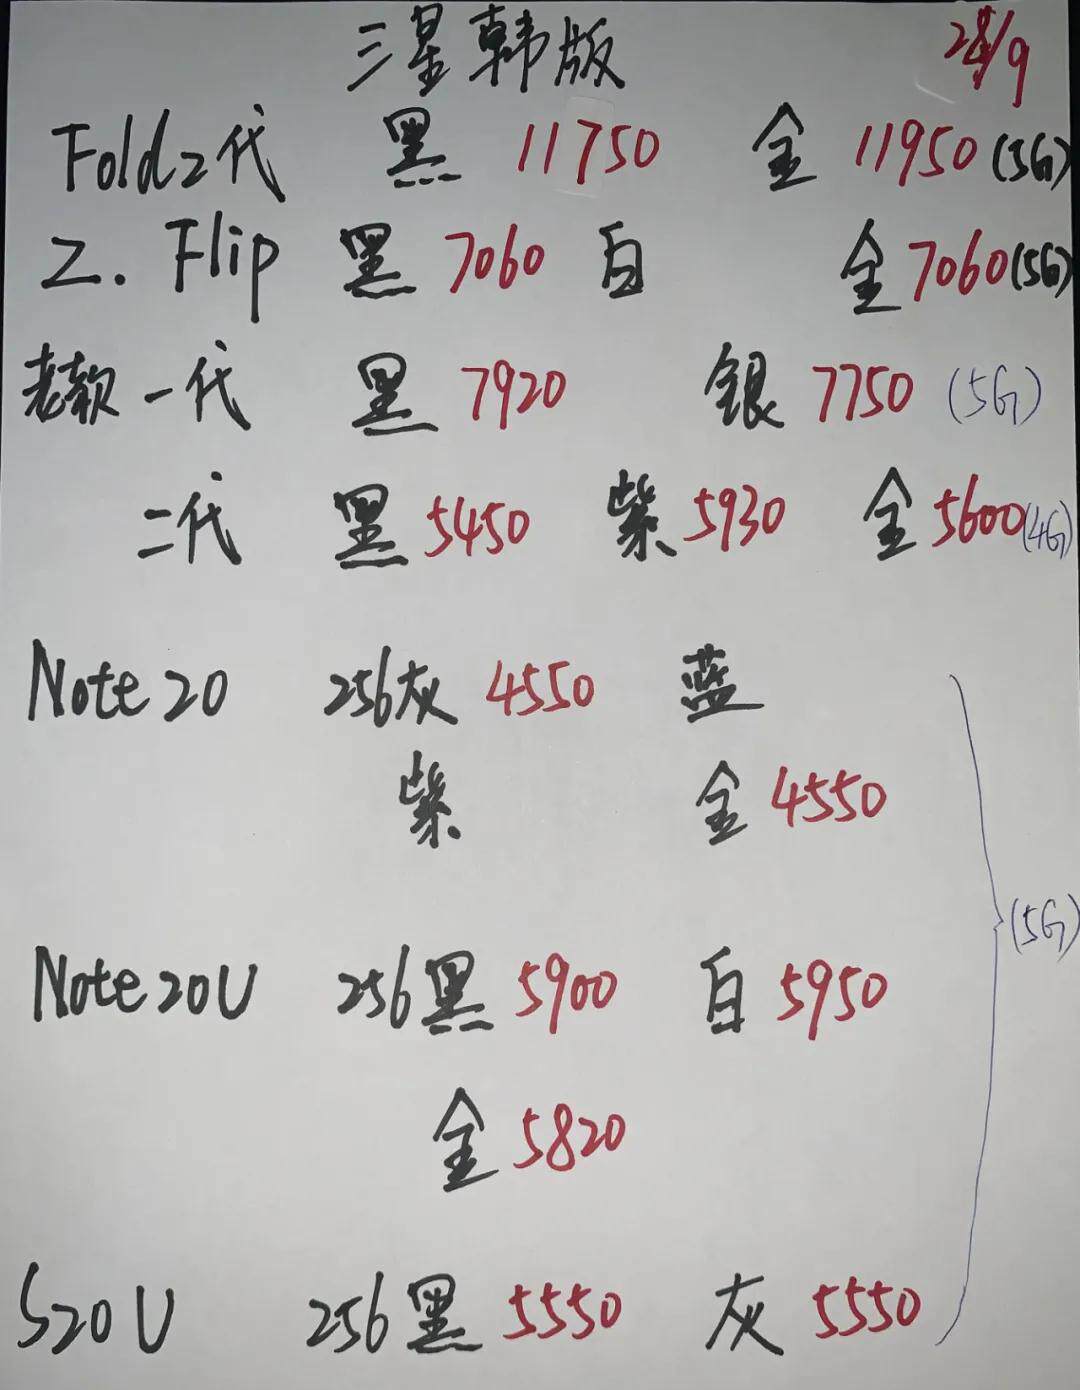 三星韩版 28/9
Fold2代 黑 11750 金 11950 (5G)
Z. Flip 黑 7060 白 金 7060 (5G)
老款 一代 黑 7920 银 7750 (5G)
二代 黑 5450 紫 5930 金 5600 (4G)
Note 20 256灰 4550 蓝
紫 金 4550
(5G)
Note 20U 256黑 5900 白 5950
金 5820
S20U 256黑 5550 灰 5550